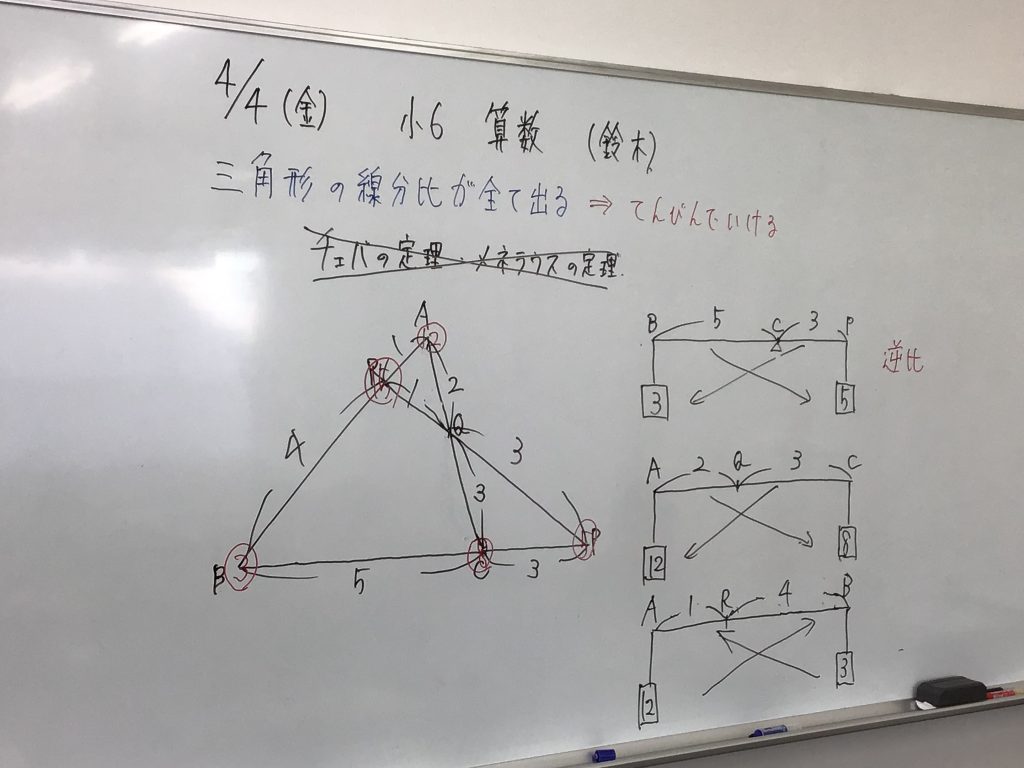 4/4(金) 小6 算数 (鈴木)
三角形の線分比が全て出る ⇒ てんびんでいける
チェバの定理・メネラウスの定理.
A
1
2
R
1
Q
4
3
3
B
3
5
C
3
P
B 5 C 3 P
3 5
逆比
A 2 Q 3 C
12 8
A 1 R 4 B
12 3